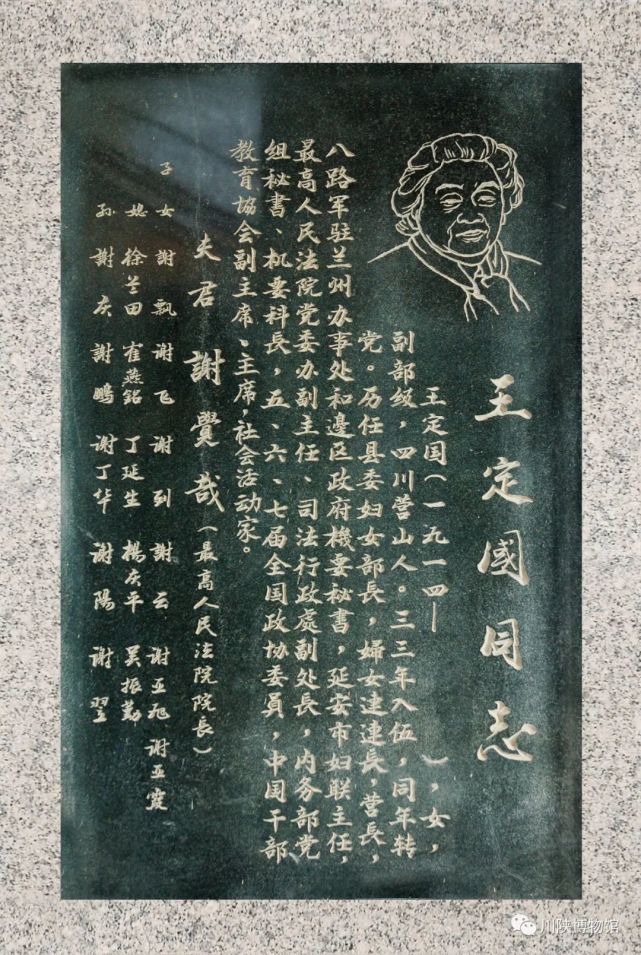 王定國同志
王定国(一九一四— ),女,
副部级,四川营山人。三三年入伍,同年转
党。历任县委妇女部長,婦女連連長,营長,
八路军驻兰州办事处和邊区政府機要秘書,延安市妇联主任,
最高人民法院党委办副主任、司法行政處副处長,内务部党
组秘書、机要科長,五、六、七届全国政协委員,中国干部
教育協会副主席、主席,社会活动家。
夫君 謝覺哉(最高人民法院院長)
子女 謝飘 謝飞 謝到 謝云 謝亚旭 謝亚霞
媳 徐兰田 崔燕銘 丁延生 楊庆平 吴振勤
孙 謝庆 謝鵬 谢丁华 謝陽 谢翌
川陕博物馆